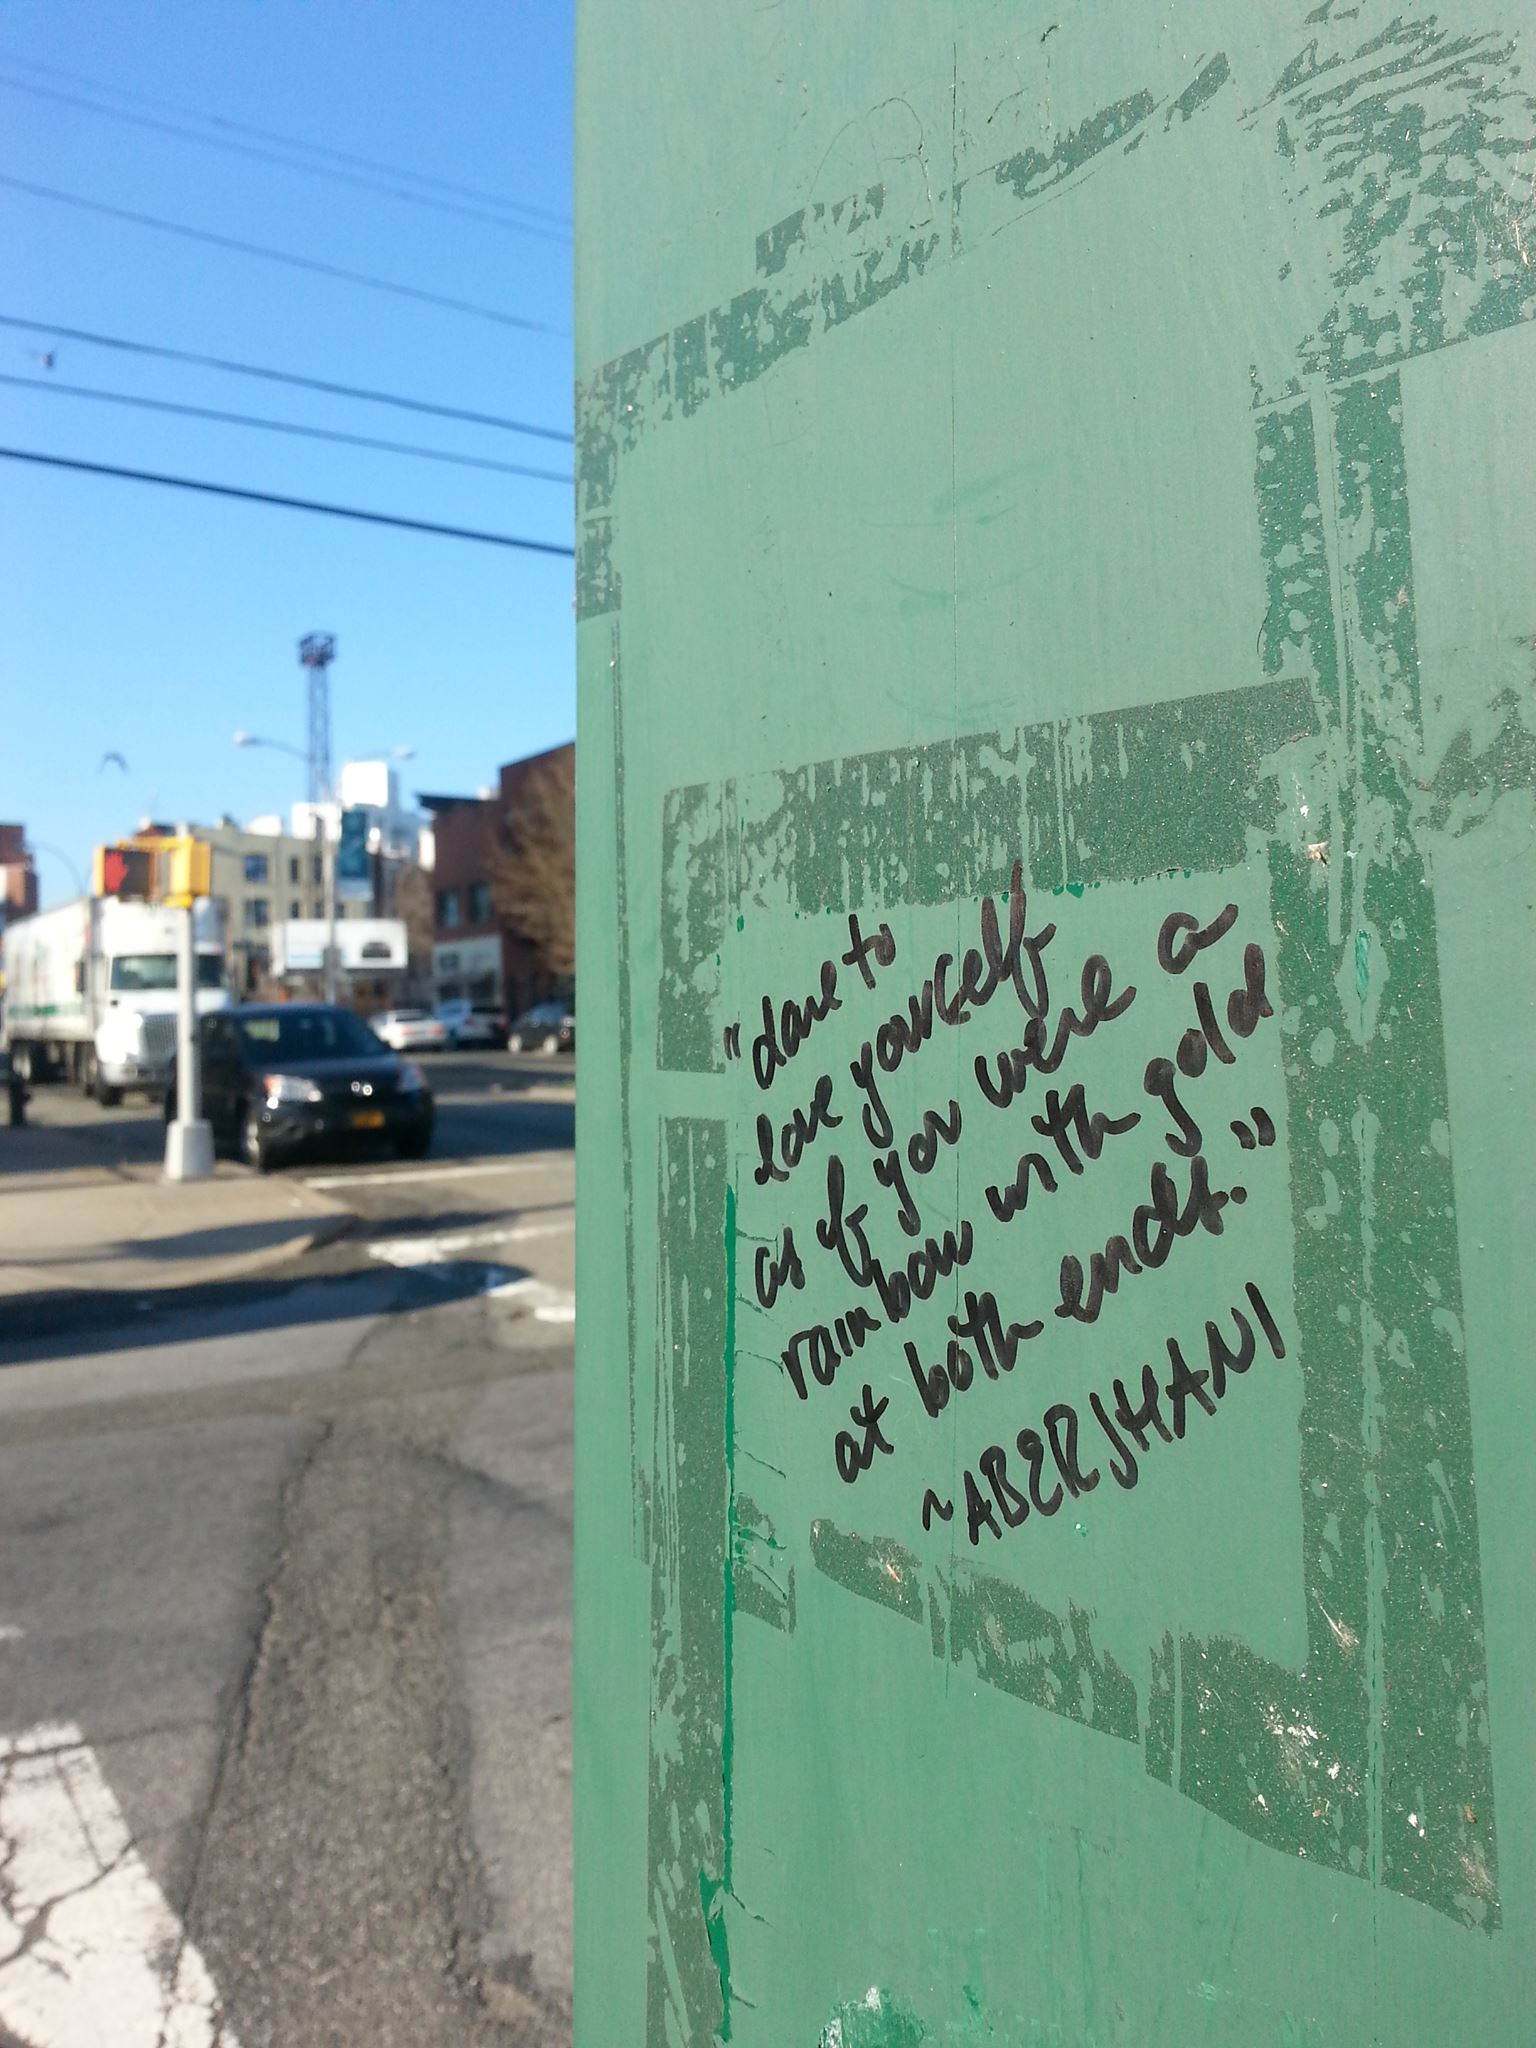 "dare to
love yourself
as if you were a
rainbow with gold
at both ends."
~ABERJHANI